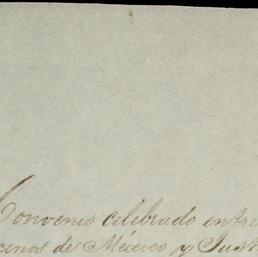 Convenio celebrado entre
cinos de México y Just